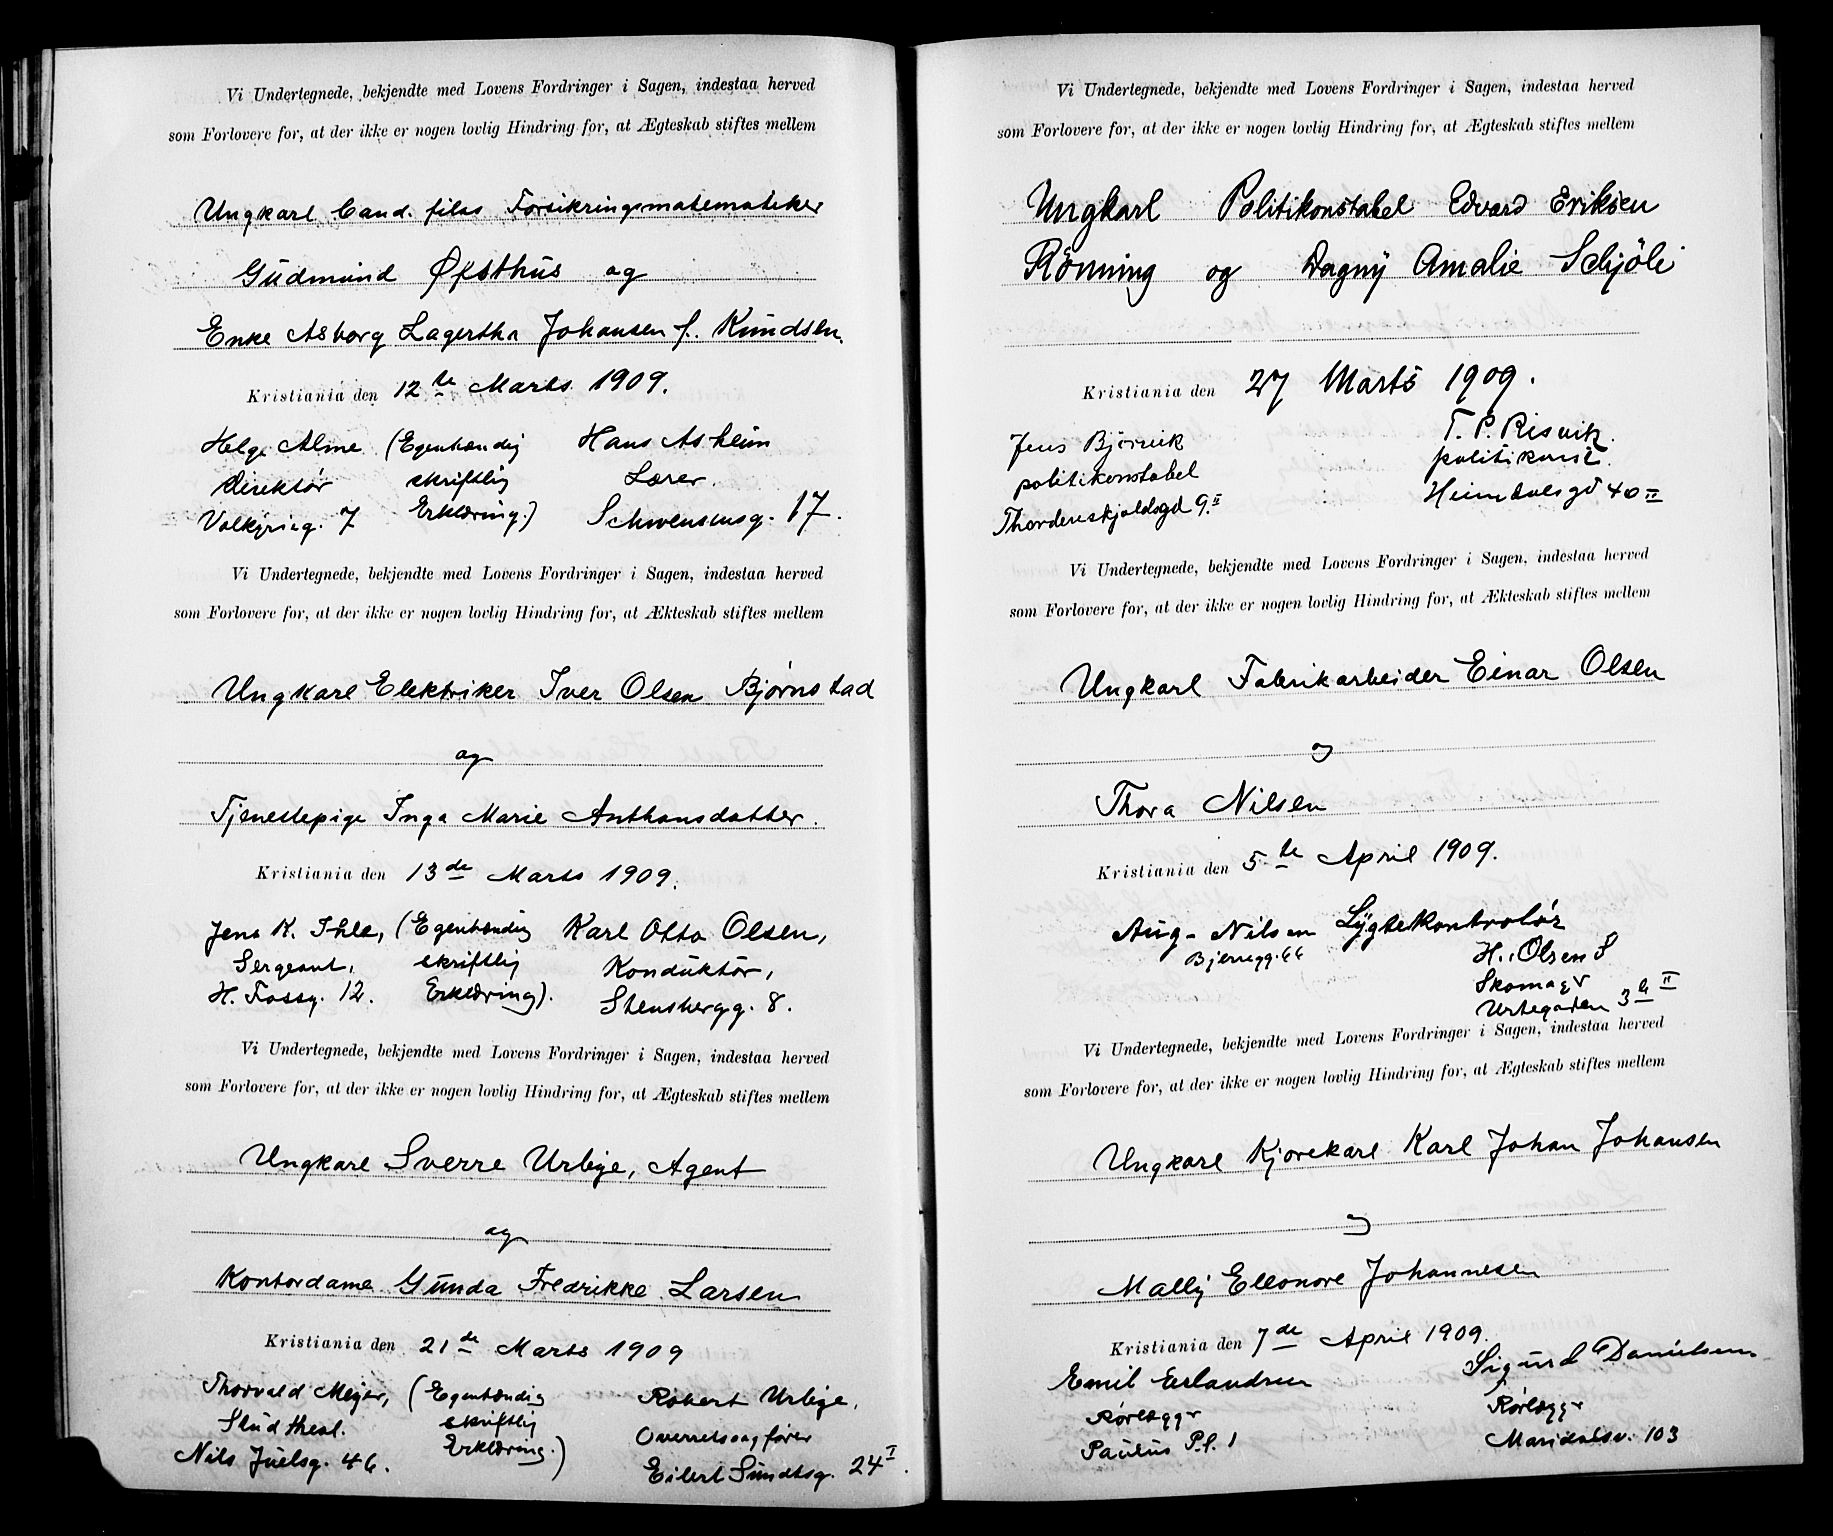 Vi Undertegnede, bekjendte med Lovens Fordringer i Sagen, indestaa herved
som Forlovere for, at der ikke er nogen lovlig Hindring for, at Ægteskab stiftes mellem
Ungkarl Cand. filos Forsikringsmatematiker
Gudmund Øfsthus og
Enke Asborg Lagertha Johansen f. Knudsen.
Kristiania den 12te Marts 1909.
Helge Alme (Egenhændig Hans Asheim
direktør skriftlig Lærer.
Valkyrieg. 7 Erklæring.) Schwensensg. 17.
Vi Undertegnede, bekjendte med Lovens Fordringer i Sagen, indestaa herved
som Forlovere for, at der ikke er nogen lovlig Hindring for, at Ækteskab stiftes mellem
Ungkarl Elektriker Iver Olsen Bjørnstad
og
Tjenestepige Inga Marie Anthonsdatter.
Kristiania den 13de Marts 1909.
Jens K. Ihle, (Egenhændig Karl Otto Olsen,
Sergeant, skriftlig Konduktør,
H. Fossg. 12. Erklæring). Stensbergg. 8.
Vi Undertegnede, bekjendte med Lovens Fordringer i Sagen, indestaa herved
som Forlovere for, at der ikke er nogen lovlig Hindring for, at Ægteskab stiftes mellem
Ungkarl Sverre Urbye, Agent
og
Kontordame Gunda Fredrikke Larsen
Kristiania den 21de Marts 1909
Thorvald Meyer, (Egenhændig Robert Urbye,
Stud theol. skriftlig Overretssagfører
Nils Juelsg. 46. Erklæring.) Eilert Sundtsg. 24 I.
Vi Undertegnede, bekjendte med Lovens Fordringer i Sagen, indestaa herved
som Forlovere for, at der ikke er nogen lovlig Hindring for, at Ægteskab stiftes mellem
Ungkarl Politikonstabel Edvard Eriksen
Rönning og Dagny Amalie Schjöli
Kristiania den 27 Marts 1909.
Jens Bjørvik T. P. Risvik.
politikonstabel politikonst.
Thordenskjoldsgd 9. II Heimdalsgd 40 II
Vi Undertegnede, bekjendte med Lovens Fordringer i Sagen, indestaa herved
som Forlovere for, at der ikke er nogen lovlig Hindring for, at Ækteskab stiftes mellem
Ungkarl Fabrikarbeider Einar Olsen
og
Thora Nilsen
Kristiania den 5te April 1909.
Aug. Nilsen Lygtekontrolør
Bjerregg. 66 H. Olsen
Skomager
Urtegaden 3 b II
Vi Undertegnede, bekjendte med Lovens Fordringer i Sagen, indestaa herved
som Forlovere for, at der ikke er nogen lovlig Hindring for, at Ægteskab stiftes mellem
Ungkarl Kjørekarl Karl Johan Johansen
og
Mally Eleonore Johannesen
Kristiania den 7de April 1909.
Emil Erlandsen Sigurd Danielsen
Rørlægger Rørlægger
Paulus Pl. 1 Maridalsv. 103